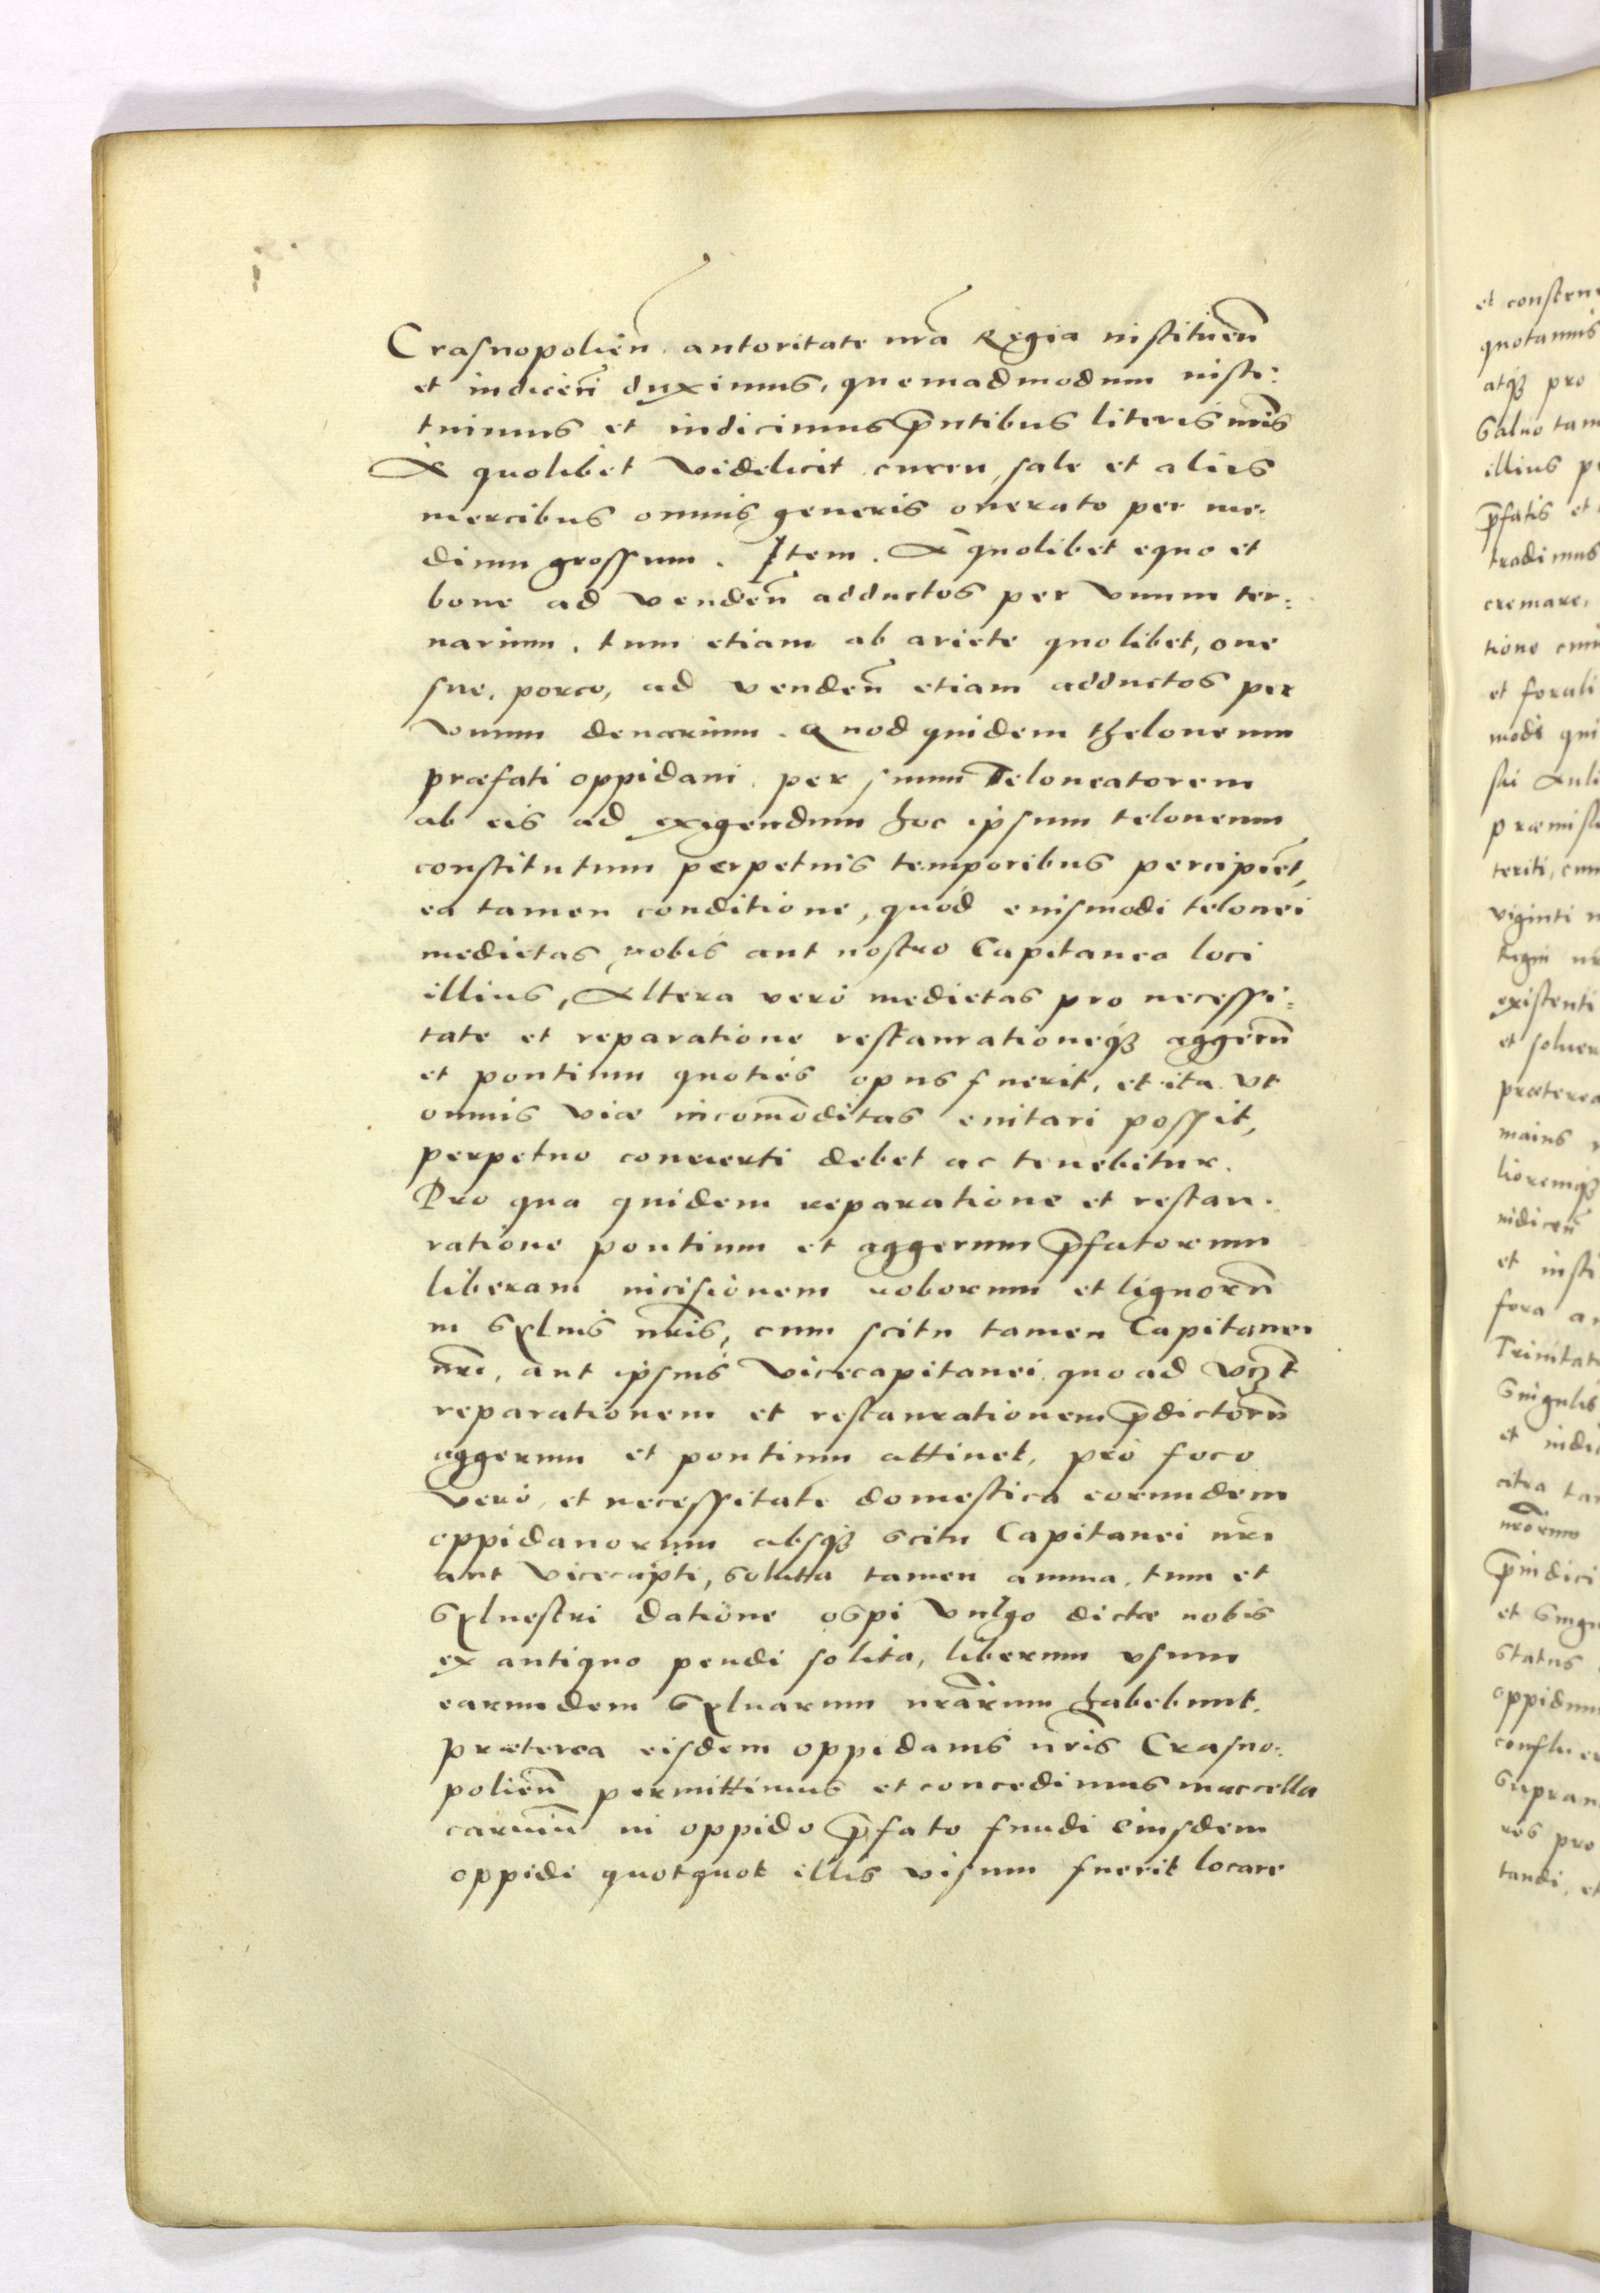 Crasnopolien̄. autoritate nr̄a Regia instituen̄
et indicen̄ duximus, quemadmodum insti:
tuimus et indicimus p̄ntibus literis nr̄is
A quolibet videlicit curru, sale et alies
mercibus omnis generis onerato per me:
dium grossum. Item. A quolibet equo et
boue ad venden̄ adductos per vnum ter:
narium, tum etiam ab ariete quolibet, oue
sue, porco, ad venden̄ etiam adductos per
vnum denarium. Quod quidem theloneum
præfati oppidani per suum Teloneatorem
ab eis ad exigendum hoc ipsum teloneum
constitutum perpetuis temporibus percipiēt,
ea tamen conditione, quód euismodi telonei
medietas nobis aut nostro Capitaneo loci
illius, Altera veró medietas pro necessi:
tate et reparatione restaurationeqꝫ aggerū
et pontium quoties opus fuerit, et ita vt
omnis viæ incom̄oditas euitari possit,
perpetuo conuerti debet ac tenebitur.
Pro qua quidem reparatione et restau:
ratione pontium et aggerum p̄fatorum
liberam incisionem roborum et lignorū
in syluis nr̄is, cum scitu tamen Capitanei
nr̄i, aut ipsius Vicecapitanei quo ad vꝫt
reparationem et restaurationem p̄dictorū
aggerum et pontium attinet, pro foco
veró et necessitate domestica eorundem
oppidanorum absqꝫ scitu Capitanei nr̄i
aut Vicecapti, soluta tamen annua tum et
syluestri datione ospi vulgo dictæ nobis
ex antiquo pendi solita, liberum vsum
earundem syluarum nrārum habebunt.
Præterea eisdem oppidanis nr̄is Crasno:
polien̄ permittimus et concedimus maccella
carniū in oppido p̄fato fundi eiusdem
oppidi quotquot illis visum fuerit locare
et
quotannis
atqꝫ pro
Saluo tam
illius
p̄fatis et
tradimus
cremare,
et forali
modi qui
viginti
existenti
et
præterea
maius
et insti
fora
Trinitat
Singulis
et
status
oppidum
pro
tandi, et